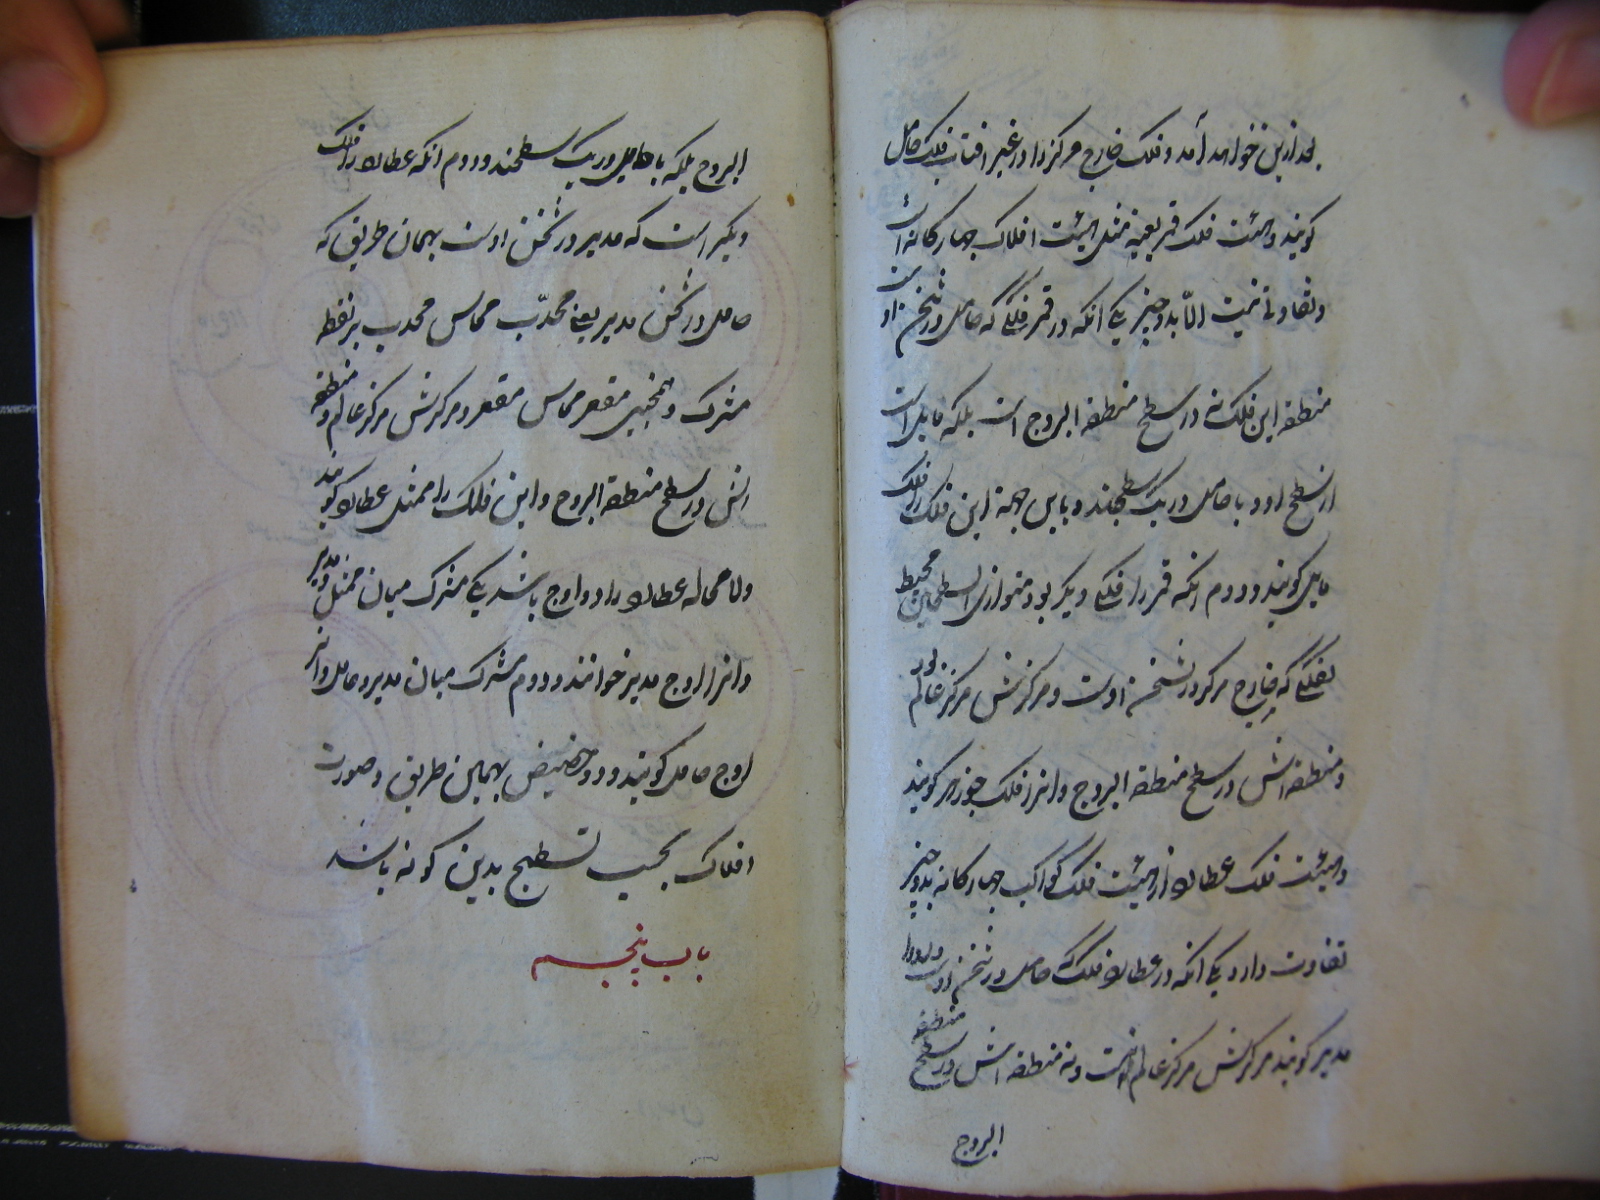 بعد ازین خواهد آمد و فلک خارج مرکز را در غیر افتاب فلک حامل
کویند و هیئت فلک قمر بعینه مثل هیئت افلاک چهارکانه است
و تفاوتی نیست الّا بدو چیز یکی انکه در قمر فلکی که حامل در ثخن اوست
منطقه این فلک نه در سطح منطقة البروج است بلکه مایل است
از سطح او و با حامل در یک سطحند و باین جهة این فلک را فلک
مایل کویند و دوم انکه قمر را فلکی دیکر بود متوازی السطحین محیط
بفلکی که خارج مرکز در ثخن اوست و مرکزش مرکز عالم بود
و منطقه اش در سطح منطقة البروج و انرا فلک جوزهر کویند
و هیئت فلک عطارد از هیئت فلک کواکب چهارکانه بدو چیز
تفاوت دارد یکی انکه در عطارد فلکی که حامل در ثخن اوست و او را
مدیر کویند مرکزش مرکز عالم نیست و نه منطقه اش در سطح منطقة
البروج
البروج بلکه با حامل در یک سطحند و دوم انکه عطارد را فلک
دیکر است که مدیر در ثخن اوست بهمان طریق که
حامل در ثخن مدیر یعنی محدّب مماس محدب بر نقطه
مشترک و همچنین مقعر مماس مقعر و مرکزش مرکز عالم و منطقه
اش در سطح منطقة البروج و این فلک را ممثل عطارد کویند
و لامحاله عطارد را دو اوج باشد یکی مشترک میان ممثل و مدیر
و انرا اوج مدیر خوانند و دوم مشترک میان مدیر و حامل و انرا
اوج حامل کویند و دو حضیض بهمین طریق و صورت
افلاک بحسب تسطیح بدین کونه باشد
باب پنجم